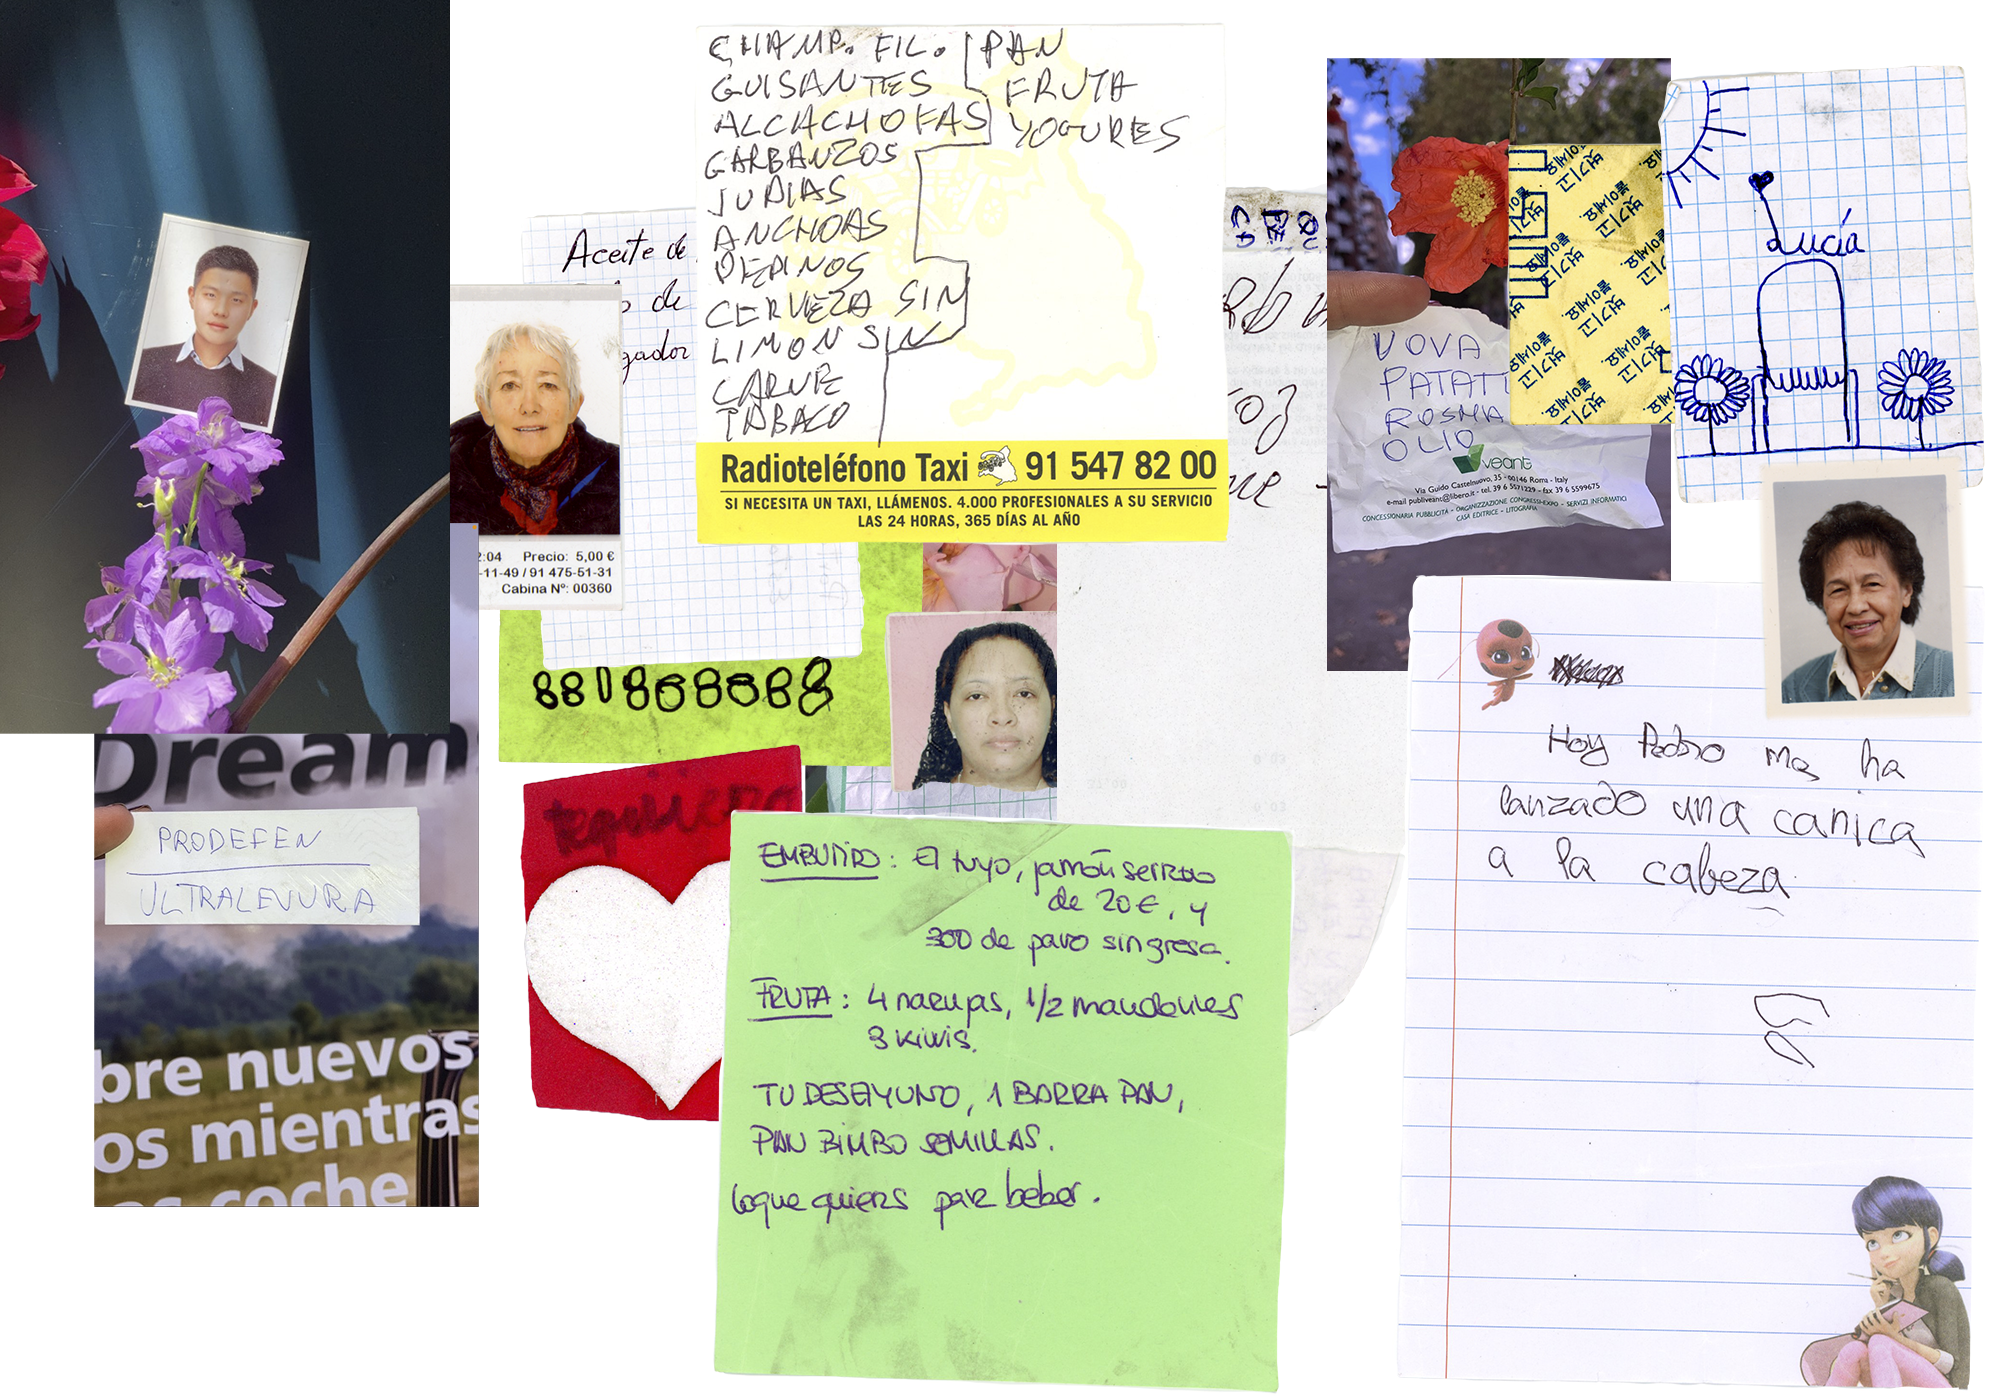 CHAMP. FIL.
GUISANTES
ALCACHOFAS
GARBANZOS
JUDIAS
ANCHOAS
PEPINOS
CERVEZA SIN
LIMON SIN
CARNE
TABACO
PAN
FRUTA
YOGURES
Radioteléfono Taxi 91 547 82 00
SI NECESITA UN TAXI, LLÁMENOS. 4.000 PROFESIONALES A SU SERVICIO
LAS 24 HORAS, 365 DÍAS AL AÑO
Aceite de
de
gador
2:04 Precio: 5,00 €
-11-49 / 91 475-51-31
Cabina Nº: 00360
UOVA
PATAT
ROSMA
OLIO
veant
Via Guido Castelnuovo, 35 - 00146 Roma - Italy
e-mail publiveant@libero.it - tel. 39 6 5571229 - fax 39 6 5599675
CONCESSIONARIA PUBBLICITÀ - ORGANIZZAZIONE CONGRESSI-EXPO - SERVIZI INFORMATICI
CASA EDITRICE - LITOGRAFIA
벗기고
붙이세요.
Lucía
Hoy Pedro me ha
lanzado una canica
a la cabeza
Dream
PRODEFEN
ULTRALEVURA
bre nuevos
os mientras
coche
EMBUTIDO: El tuyo, jamón serrano
de 20€, y
300 de pavo sin grasa.
FRUTA: 4 naranjas, 1/2 mandarines
3 kiwis.
TU DESAYUNO, 1 BARRA PAN,
PAN BIMBO SEMILLAS.
loque quieras para beber.